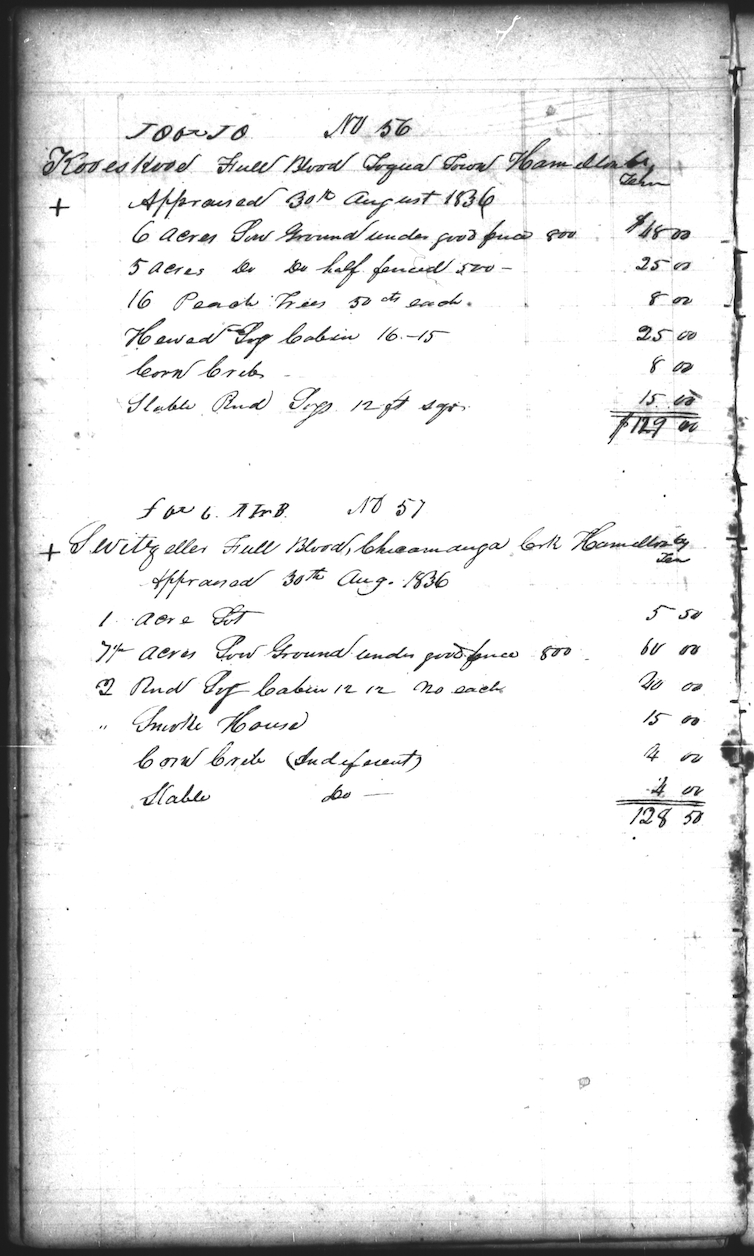 No 56
Kooeskood Full Blood Toqua Town Hamilton Co,
Tenn
+ Appraised 30th August 1836
6 acres Low Ground under good fence 800 $48 00
5 acres Do Do half fenced 500 - 25 00
16 Peach Trees 50 cts each. 8 00
Hewed Log Cabin 16-15 25 00
Corn Crib 8 00
Stable Rnd Logs 12 ft sqr. 15 00
$129 00
No 57
+ Switzeller Full Blood, Chicamauga Crk Hamilton Cy
Ten
Appraised 30th Aug. 1836
1 acre Lot 5 50
acres Low Ground under good fence 800 60 00
2 Rnd Log Cabin 12 12 each 40 00
" Smoke House 15 00
Corn Crib (Indifferent) 4 00
Stable Do — 4 00
128 50